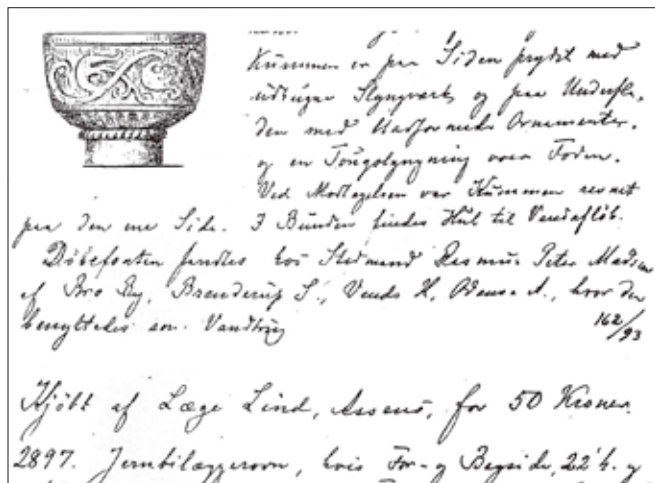 Kummen er paa Siden prydet med
udtunget Slyngværk og paa Underfla-
den med bladformede Ornementer.
og en Tougslyngning over Foden.
Ved Modtagelsen var Kummen revnet
paa den ene Side. I Bunden findes Hul til Vandafløb.
Døbefonten fandtes hos Stedmand Rasmus Peter Madsen
af Bro By, Brenderup S., Vends H., Odense A., hvor den
benyttedes som Vandtrug
162/93
Kjöbt af Læge Lind, Assens, for 50 Kroner.
2897. Jernbilæggerovn, hvis For- og Bagside, 22' h. og